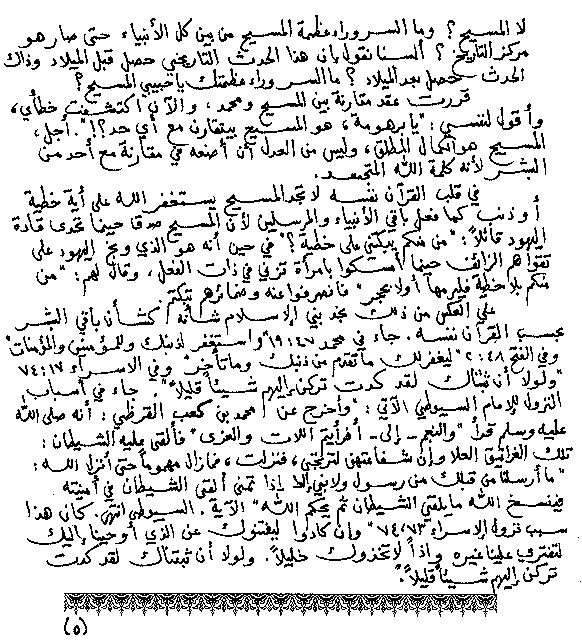 لا المسيح؟ وما السر وراء عظمة المسيح من بين كل الأنبياء حتى صار هو
مركز التاريخ؟ ألسنا نقول بأن هذا الحدث التاريخي حصل قبل الميلاد وذاك
الحدث حصل بعد الميلاد؟ ما السر وراء عظمتك يا حبيبي المسيح؟
قررت عقد مقارنة بين المسيح ومحمد، والآن اكتشفت خطأي،
وأقول لنفسي: "يا برهومة، هو المسيح بيتقارن مع أي حد؟!". أجل،
المسيح هو الكمال المطلق، وليس من العدل أن أضعه في مقارنة مع أحد من
البشر لأنه كلمة الله المتجسد.
في قلب القرآن نفسه لا تجد المسيح يستغفر الله على أية خطية
أو ذنب كما فعل باقي الأنبياء والمرسلين لأن المسيح صدقا حينما تحدى قادة
اليهود قائلاً: "من منكم يبكتني على خطية؟" في حين أنه هو الذي وبخ اليهود على
تقواهم الزائف حينما أمسكوا بامرأة تزني في ذات الفعل، وقال لهم: "من
منكم بلا خطية فليرمها أولا بحجر" فانصرفوا عنه وضمائرهم تبكتهم.
على العكس من ذلك نجد نبي الإسلام شأنه كشأن باقي البشر
بحسب القرآن نفسه. جاء في محمد ١٩:٤٧ "واستغفر لذنبك وللمؤمنين والمؤمنات"
وفي الفتح ٢:٤٨ "ليغفر لك ما تقدم من ذنبك وما تأخر" وفي الاسراء ٧٤:١٧
"ولولا أن ثبتناك لقد كدت تركن إليهم شيئاً قليلاً". جاء في أسباب
النزول للإمام السيوطي الآتي: "وأخرج عن محمد بن كعب القرظي: أنه صلى الله
عليه وسلم قرأ "والنجم - إلى - أفرأيتم اللات والعزى" فألقى عليه الشيطان:
تلك الغرانيق العلا وإن شفاعتهن لترتجى، فنزلت، فمازال مهموماً حتى أنزل الله:
"ما أرسلنا من قبلك من رسول ولا نبي إلا إذا تمنى ألقى الشيطان في أمنيته
فينسخ الله ما يلقي الشيطان ثم يحكم الله" الآية. السيوطي انتهى. كان هذا
سبب نزول الإسراء ٧٤،٧٣ "وإن كادوا ليفتنوك عن الذي أوحينا إليك
لتفتري علينا غيره وإذاً لاتخذوك خليلاً. ولولا أن ثبتناك لقد كدت
تركن إليهم شيئاً قليلاً".
(٥)